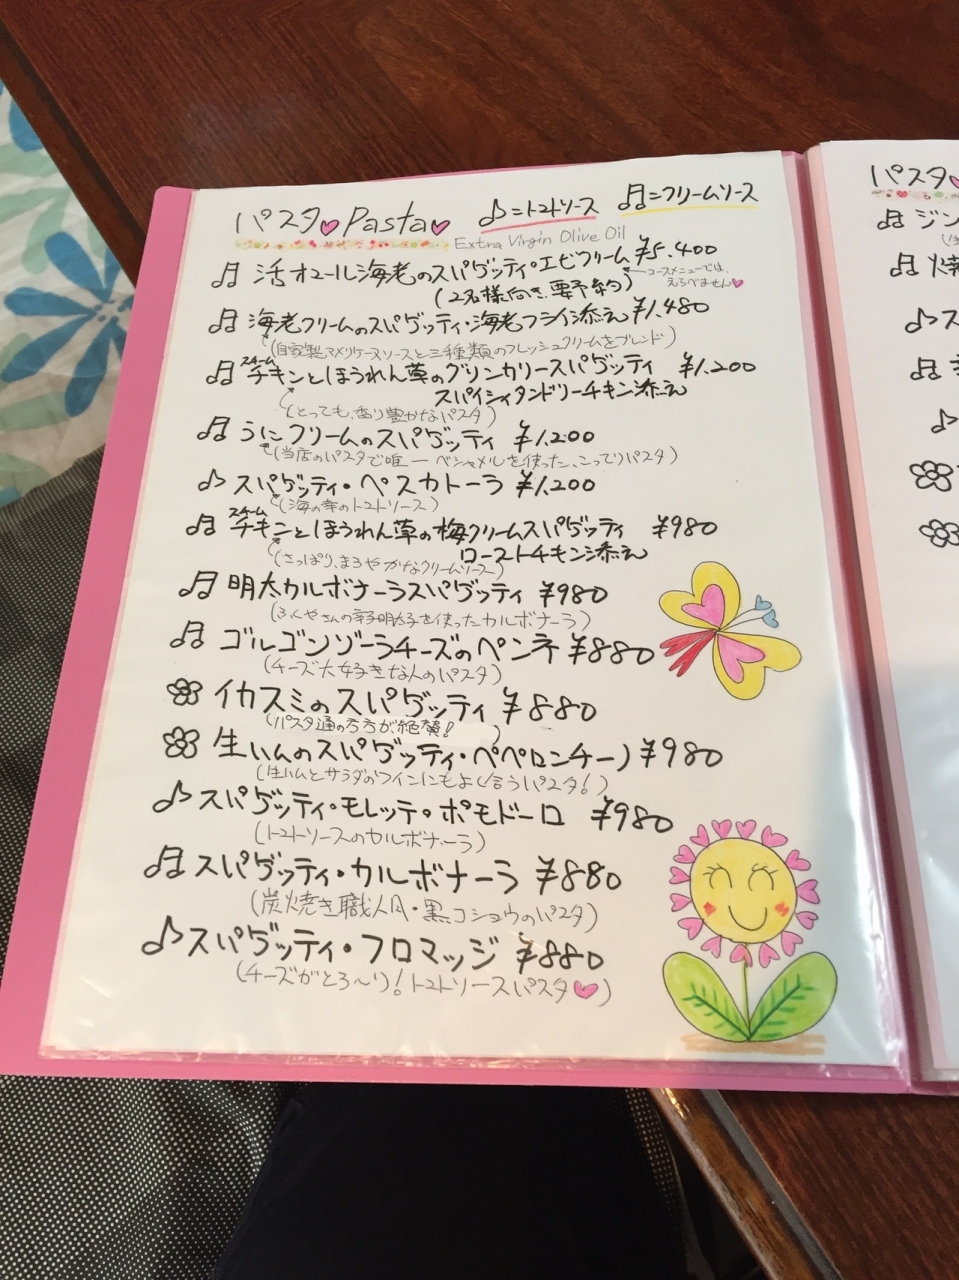 パスタ♥Pasta♥ ♪=トマトソース ♫=クリームソース
Extra Virgin Olive Oil
♫ 活オマール海老のスパゲッティ・エビクリーム ¥5.400
(2名様向き、要予約)
コースメニューでは、
えらべません♥
♫ 海老クリームのスパゲッティ・海老フライ添え ¥1.480
(自家製アメリケーヌソースと三種類のフレッシュクリームをブレンド)
♫ スチームチキンとほうれん草のグリンカリースパゲッティ ¥1.200
スパイシィタンドリーチキン添え
(とっても、香り豊かなパスタ)
♫ うにクリームのスパゲッティ ¥1.200
(当店のパスタで唯一ベシャメルを使った、こってりパスタ)
♪ スパゲッティ・ペスカトーラ ¥1.200
(海の幸のトマトソース)
♫ スチームチキンとほうれん草の梅クリームスパゲッティ ¥980
ローストチキン添え
(さっぱり、まろやかなクリームソース)
♫ 明太カルボナーラスパゲッティ ¥980
(ふくやさんの辛子明太子を使ったカルボナーラ)
♫ ゴルゴンゾーラチーズのペンネ ¥880
(チーズ大好きな人のパスタ)
イカスミのスパゲッティ ¥880
(パスタ通の方が、絶賛!)
生ハムのスパゲッティ・ペペロンチーノ ¥980
(生ハムとサラダのワインにもよく合うパスタ!)
♪ スパゲッティ・モレッテ・ポモドーロ ¥980
(トマトソースのカルボナーラ)
♫ スパゲッティ・カルボナーラ ¥880
(炭焼き職人風・黒コショウのパスタ)
♪ スパゲッティ・フロマッジ ¥880
(チーズがとろ〜り! トマトソースパスタ♥)
パスタ♥
♫ ジン
♪ ス